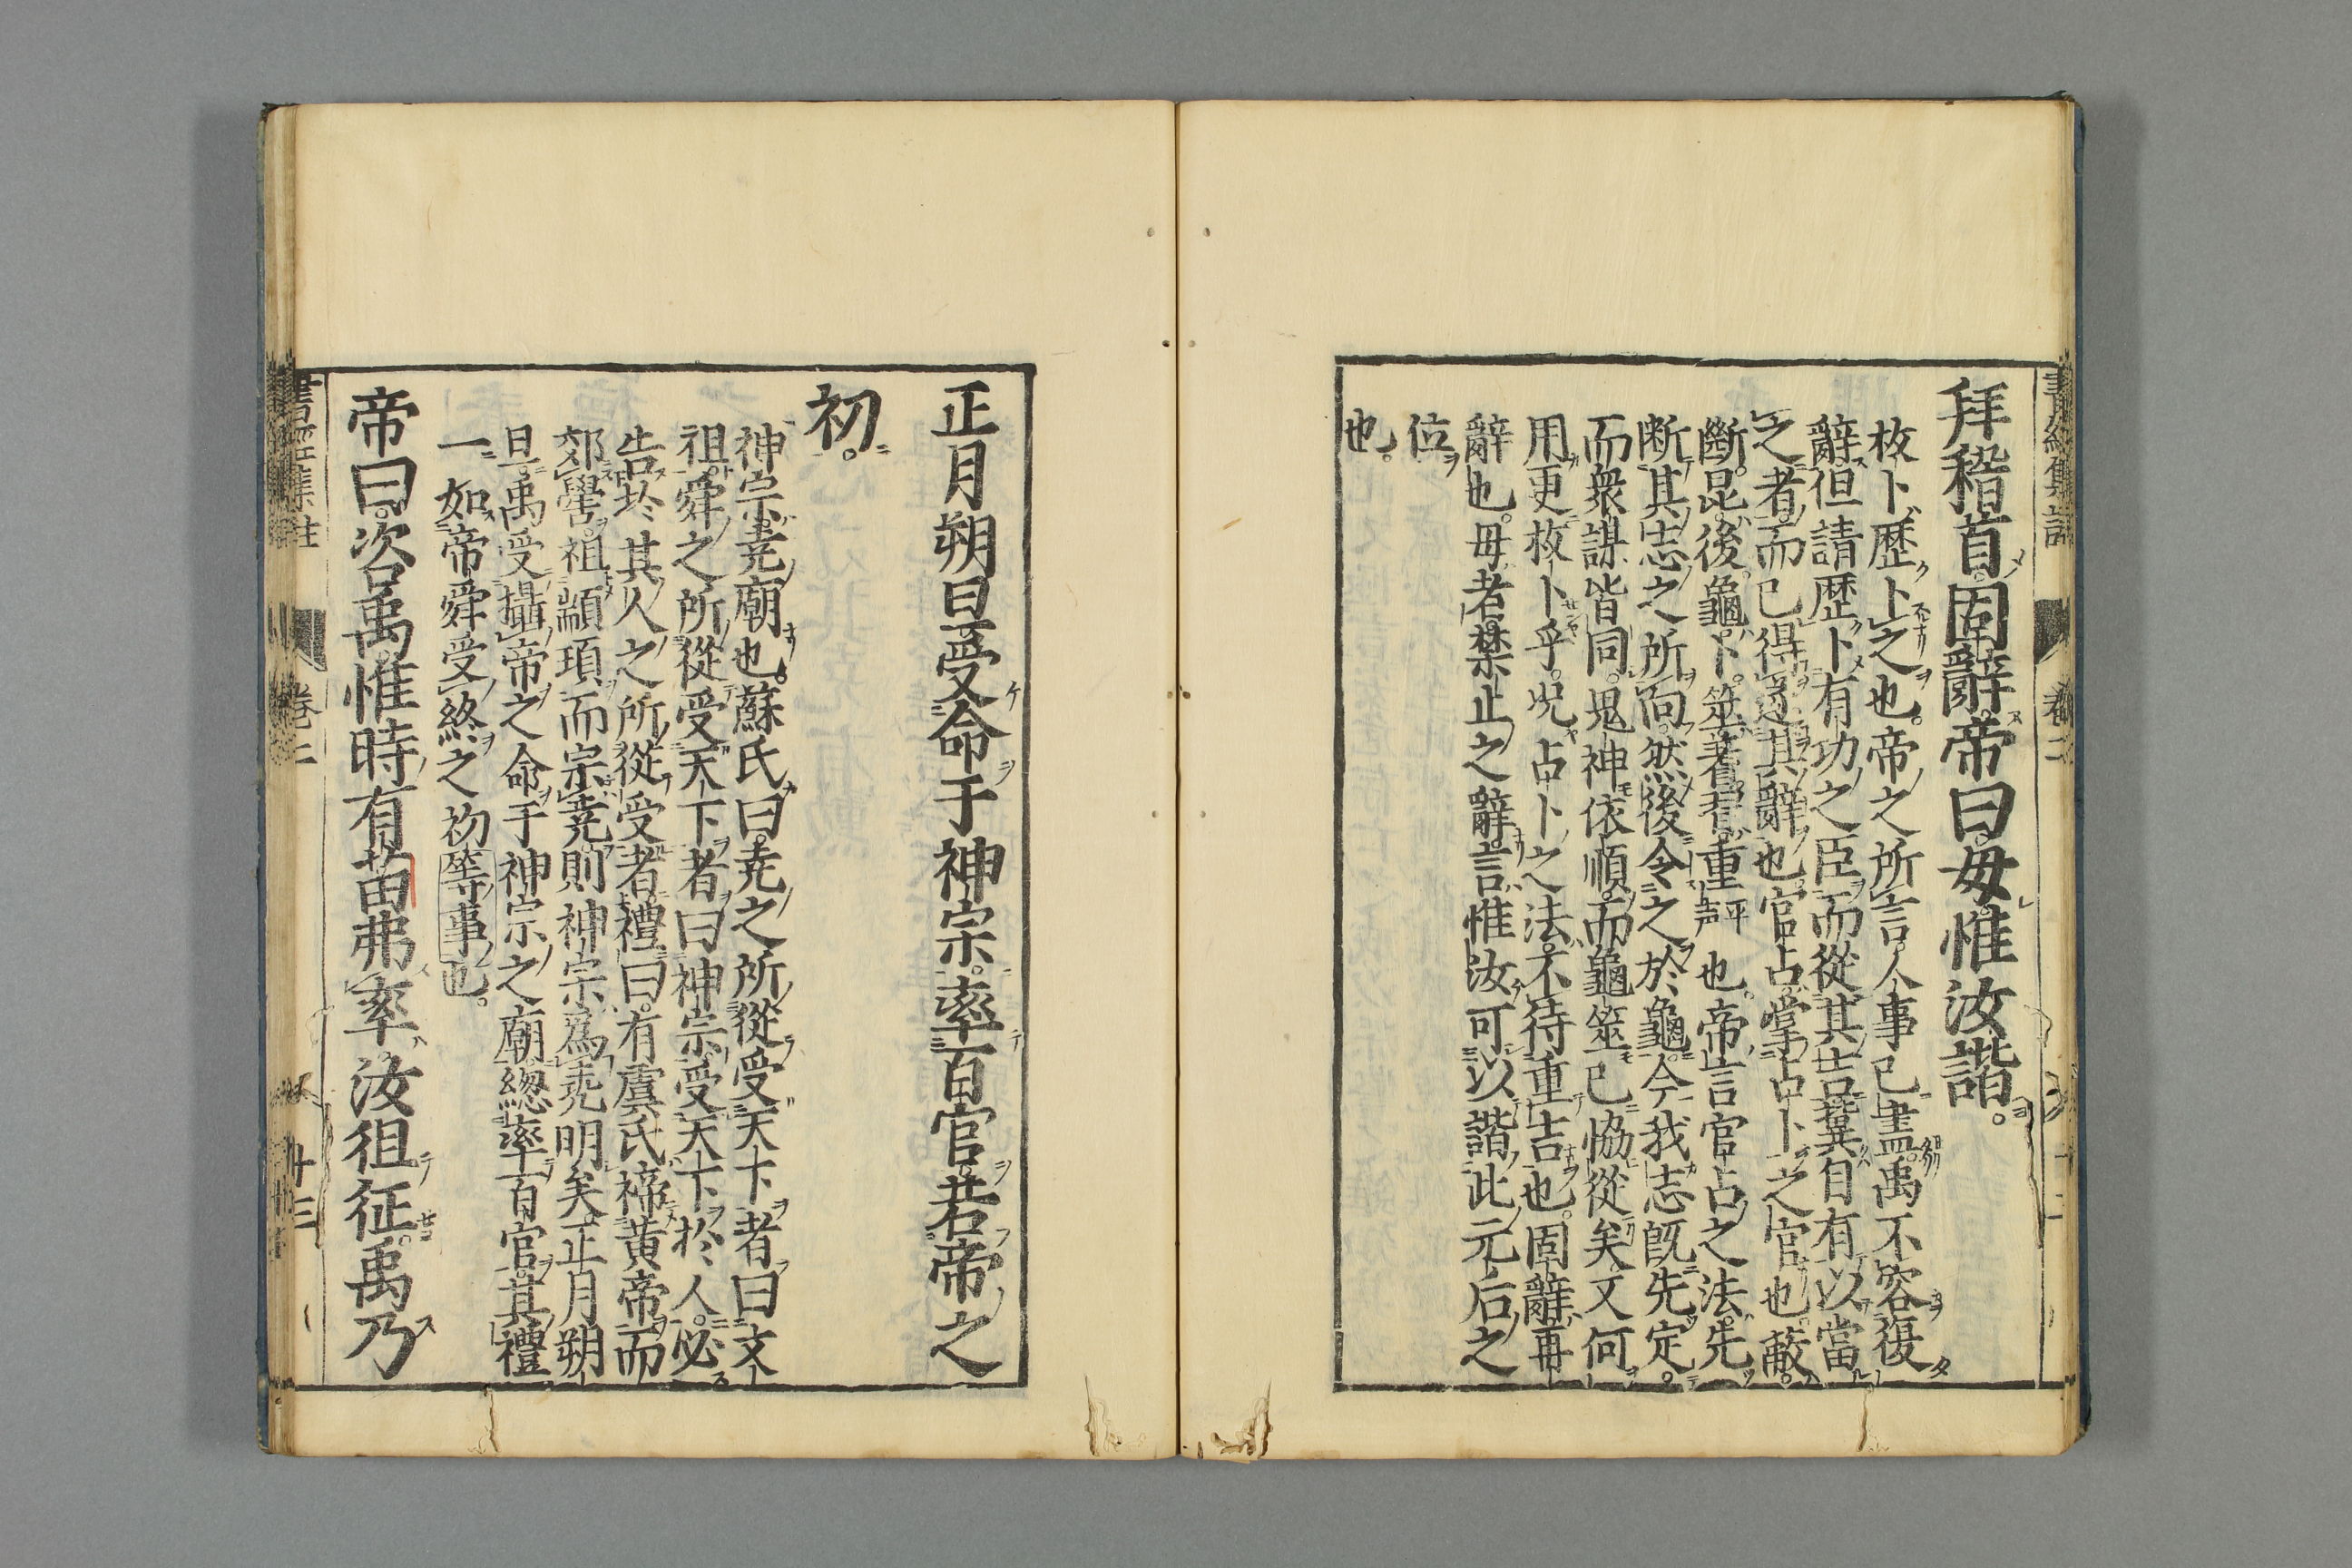 拜稽首。固辭。帝曰。毋。惟汝諧。
枚卜。歷卜之也。帝之所言。人事已盡。禹不容復
辭。但請歷卜有功之臣。而從其吉。冀自有以當
之者。而已得遂其辭也。官占。掌占卜之官也。蔽。
斷。昆。後。龜。卜。筮。蓍。習。重平声也。帝言官占之法。先
断其志之所向。然後令之於龜。今我志既先定。
而衆謀皆同。鬼神依順。而龜筮已恊從矣。又何
用更枚卜乎。况占卜之法。不待重吉也。固辭。再
辭也。毋者。禁止之辭。言惟汝可以諧此元后之
位
也。
正月朔旦。受命于神宗。率百官。若帝之
初。
神宗。堯廟也。蘇氏曰。堯之所從受天下者曰文
祖。舜之所從受天下者曰神宗。受天下於人。必
告於其人之所從受者。禮曰。有虞氏禘黄帝而
郊嚳。祖顓頊而宗堯。則神宗爲堯明矣。正月朔
旦。禹受攝帝之命于神宗之廟。總率百官。其禮
一如帝舜受終之初等事也。
帝曰。咨禹。惟時有苗弗率。汝徂征。禹乃
書經集註 卷二 十三